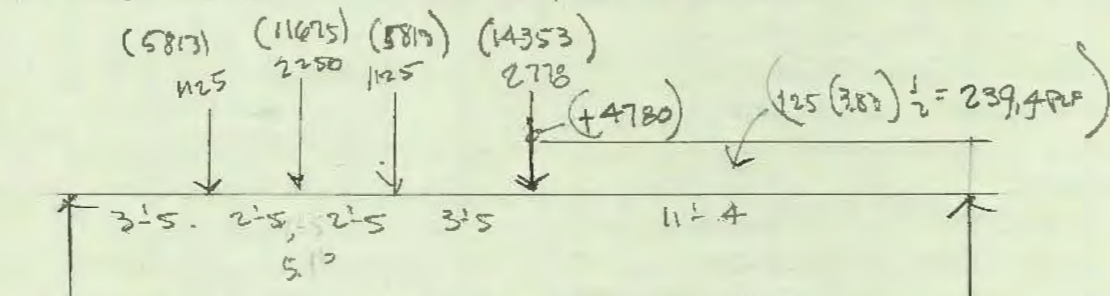 (5813) (11625) (5813) (14353)
1125 2250 1125 2778
(+4780) (125 (3.83) ½ = 239.4 PLF)
3'-5. 2'-5 2'-5 3'-5 11'-4